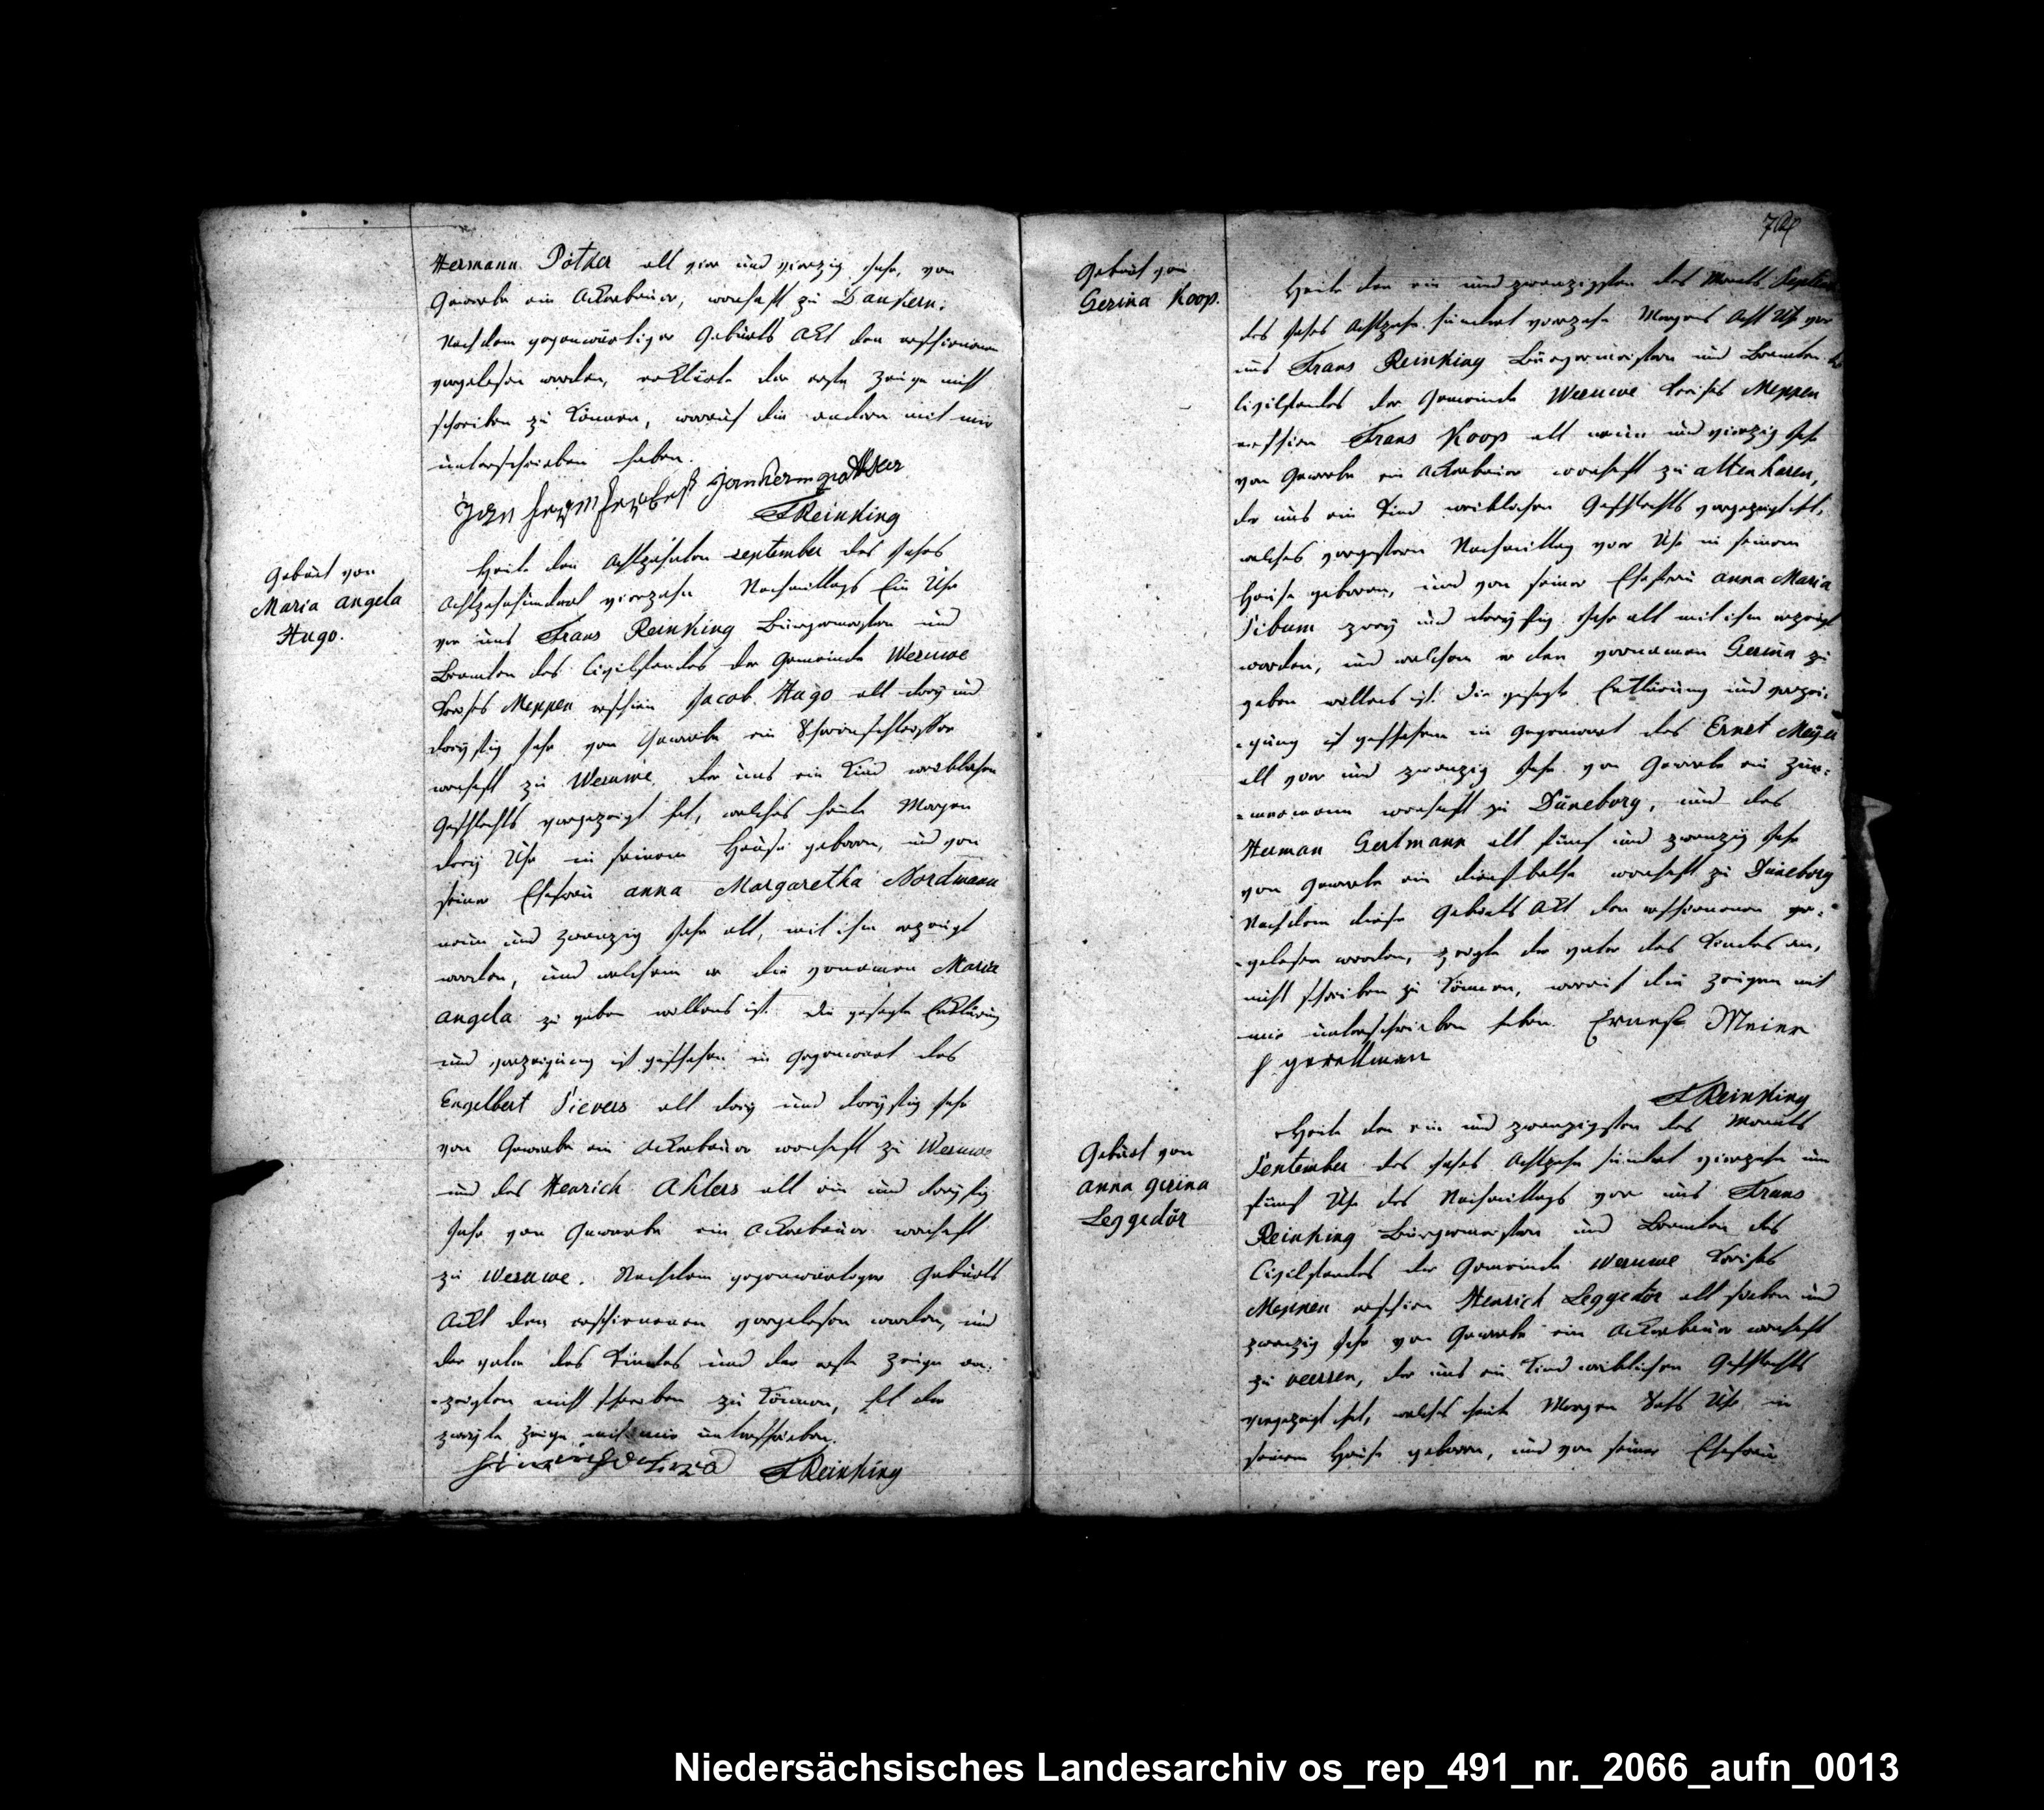 Hermann Pötker alt vier und vierzig Jahr, von
Gewerbe ein Ackerbauer, wonhaft zu Dankern.
Nachdem gegenwärtiger Geburts Akt den erschienenen
vorgelesen worden, erklärte der erste Zeuge nicht
schreiben zu können, worauf die andern mit mir
unterschrieben haben.
FReinking
Geburt von
Maria Angela
Hugo.
Heute den Achtzehnten September des Jahrs
Achtzehnhundert vierzehn Nachmittags Ein Uhr
vor uns Frans Reinking Bürgermeister und
Beamten des Civilstandes der Gemeinde Wesuwe
Kreises Meppen erschien Jacob Hugo alt drey und
dreyßig Jahr von Gewerbe ein
wonhaft zu Wesuwe, der uns ein Kind weiblichen
Geschlechts vorgezeigt hat, welches heute Morgen
drey Uhr in seinem Hause geboren, und von
seiner Ehefrau Anna Margaretha Nordmann
neun und zwanzig Jahr alt, mit ihm erzeugt
worden, und welchem er die vornamen Maria
Angela zu geben willens ist. Die gesagte Erklärung
und vorzeigung ist geschehen in Gegenwart des
Engelbert Sievers alt drey und dreyßig Jahr
von Gewerbe ein Ackerbauer wonhaft zu Wesuwe
und des Henrich Ahlers alt ein und dreyßig
Jahr von Gewerbe ein Ackerbauer wonhaft
zu Wesuwe. Nachdem gegenwärtiger Geburts
Akt den erschienenen vorgelesen worden, und
der vater des Kindes und der erste Zeuge an-
-zeigten nicht schreiben zu können, hat der
zweyte Zeuge mit mir unterschrieben.
FReinking
Geburt von
Gerina Koop.
Heute den ein und zwanzigsten des Monats
des Jahrs Achtzehn hundert vierzehn Morgens Acht Uhr vor
uns Frans Reinking Bürgermeistern und Beamten
Civilstandes der Gemeinde Wesuwe Kreises Meppen
erschien Frans Koop alt neun und vierzig Jahr
von Gewerbe ein Ackerbauer wonhaft zu Altenharen,
der uns ein Kind weiblichen Geschlechts vorgezeigt hat,
welches vorgestern Nachmittag vier Uhr in seinem
Hause geboren, und von seiner Ehefrau Anna Maria
Sibum zwey und dreyßig Jahr alt mit ihm erzeugt
worden, und welchem er den vornamen Gerina zu
geben willens ist. Die gesagte Erklärung und vorzei-
-gung ist geschehen in Gegenwart des Ernst Meyer
alt vier und zwanzig Jahr von Gewerbe ein Zim-
-mermann wonhaft zu Düneborg, und des
Herman Gertmann alt fünf und zwanzig Jahr
von Gewerbe ein wonhaft zu Düneborg
Nachdem dieser Geburts Akt den erschienenen vor-
-gelesen worden, zeigte der vater des Kindes an,
nicht schreiben zu können, worauf die Zeugen mit
mir unterschrieben haben. Ernst Meier
FReinking
Geburt von
Anna Gerina
Leggedör
Heute den ein und zwanzigsten des Monats
September des Jahrs Achtzehn hundert vierzehn um
fünf Uhr des Nachmittags vor uns Frans
Reinking Bürgermeistern und Beamten des
Civilstandes der Gemeinde Wesuwe Kreises
Meppen erschien Henrich Leggedör alt sieben und
zwanzig Jahr von Gewerbe ein Ackerbauer wonhaft
zu veersen, der uns ein Kind weiblichen Geschlechts
vorgezeigt hat, welches heute Morgen Uhr in
seinem Hause geboren, und von seiner Ehefrau
Niedersächsisches Landesarchiv os_rep_491_nr._2066_aufn_0013